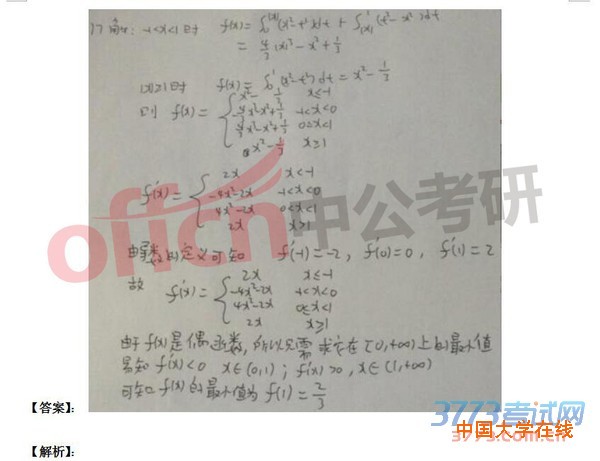 17 解: -1<x<1时 f(x)=∫₀^|x|(x²-t²)dt+∫|x|^1(t²-x²)dt
=4/3|x|³-x²+1/3
|x|≥1时 f(x)=∫₀¹(x²-t²)dt=x²-1/3
则 f(x)={ x²-1/3 x≤-1
-4/3x³-x²+1/3 -1<x<0
4/3x³-x²+1/3 0≤x<1
x²-1/3 x≥1
f'(x)={ 2x x<-1
-4x²-2x -1<x<0
4x²-2x 0<x<1
2x x>1
由导数的定义可知 f'(-1)=-2, f'(0)=0, f'(1)=2
故 f'(x)={ 2x x≤-1
-4x²-2x -1<x<0
4x²-2x 0≤x<1
2x x≥1
由于f(x)是偶函数,所以只需求它在[0,+∞)上的最小值
易知f'(x)<0 x∈(0,1); f'(x)>0, x∈(1,+∞)
可知f(x)的最小值为f(1)=2/3
offcn中公考研
【答案】:
3773考试网
www.3773.com.cn
中国大学在线
【解析】: